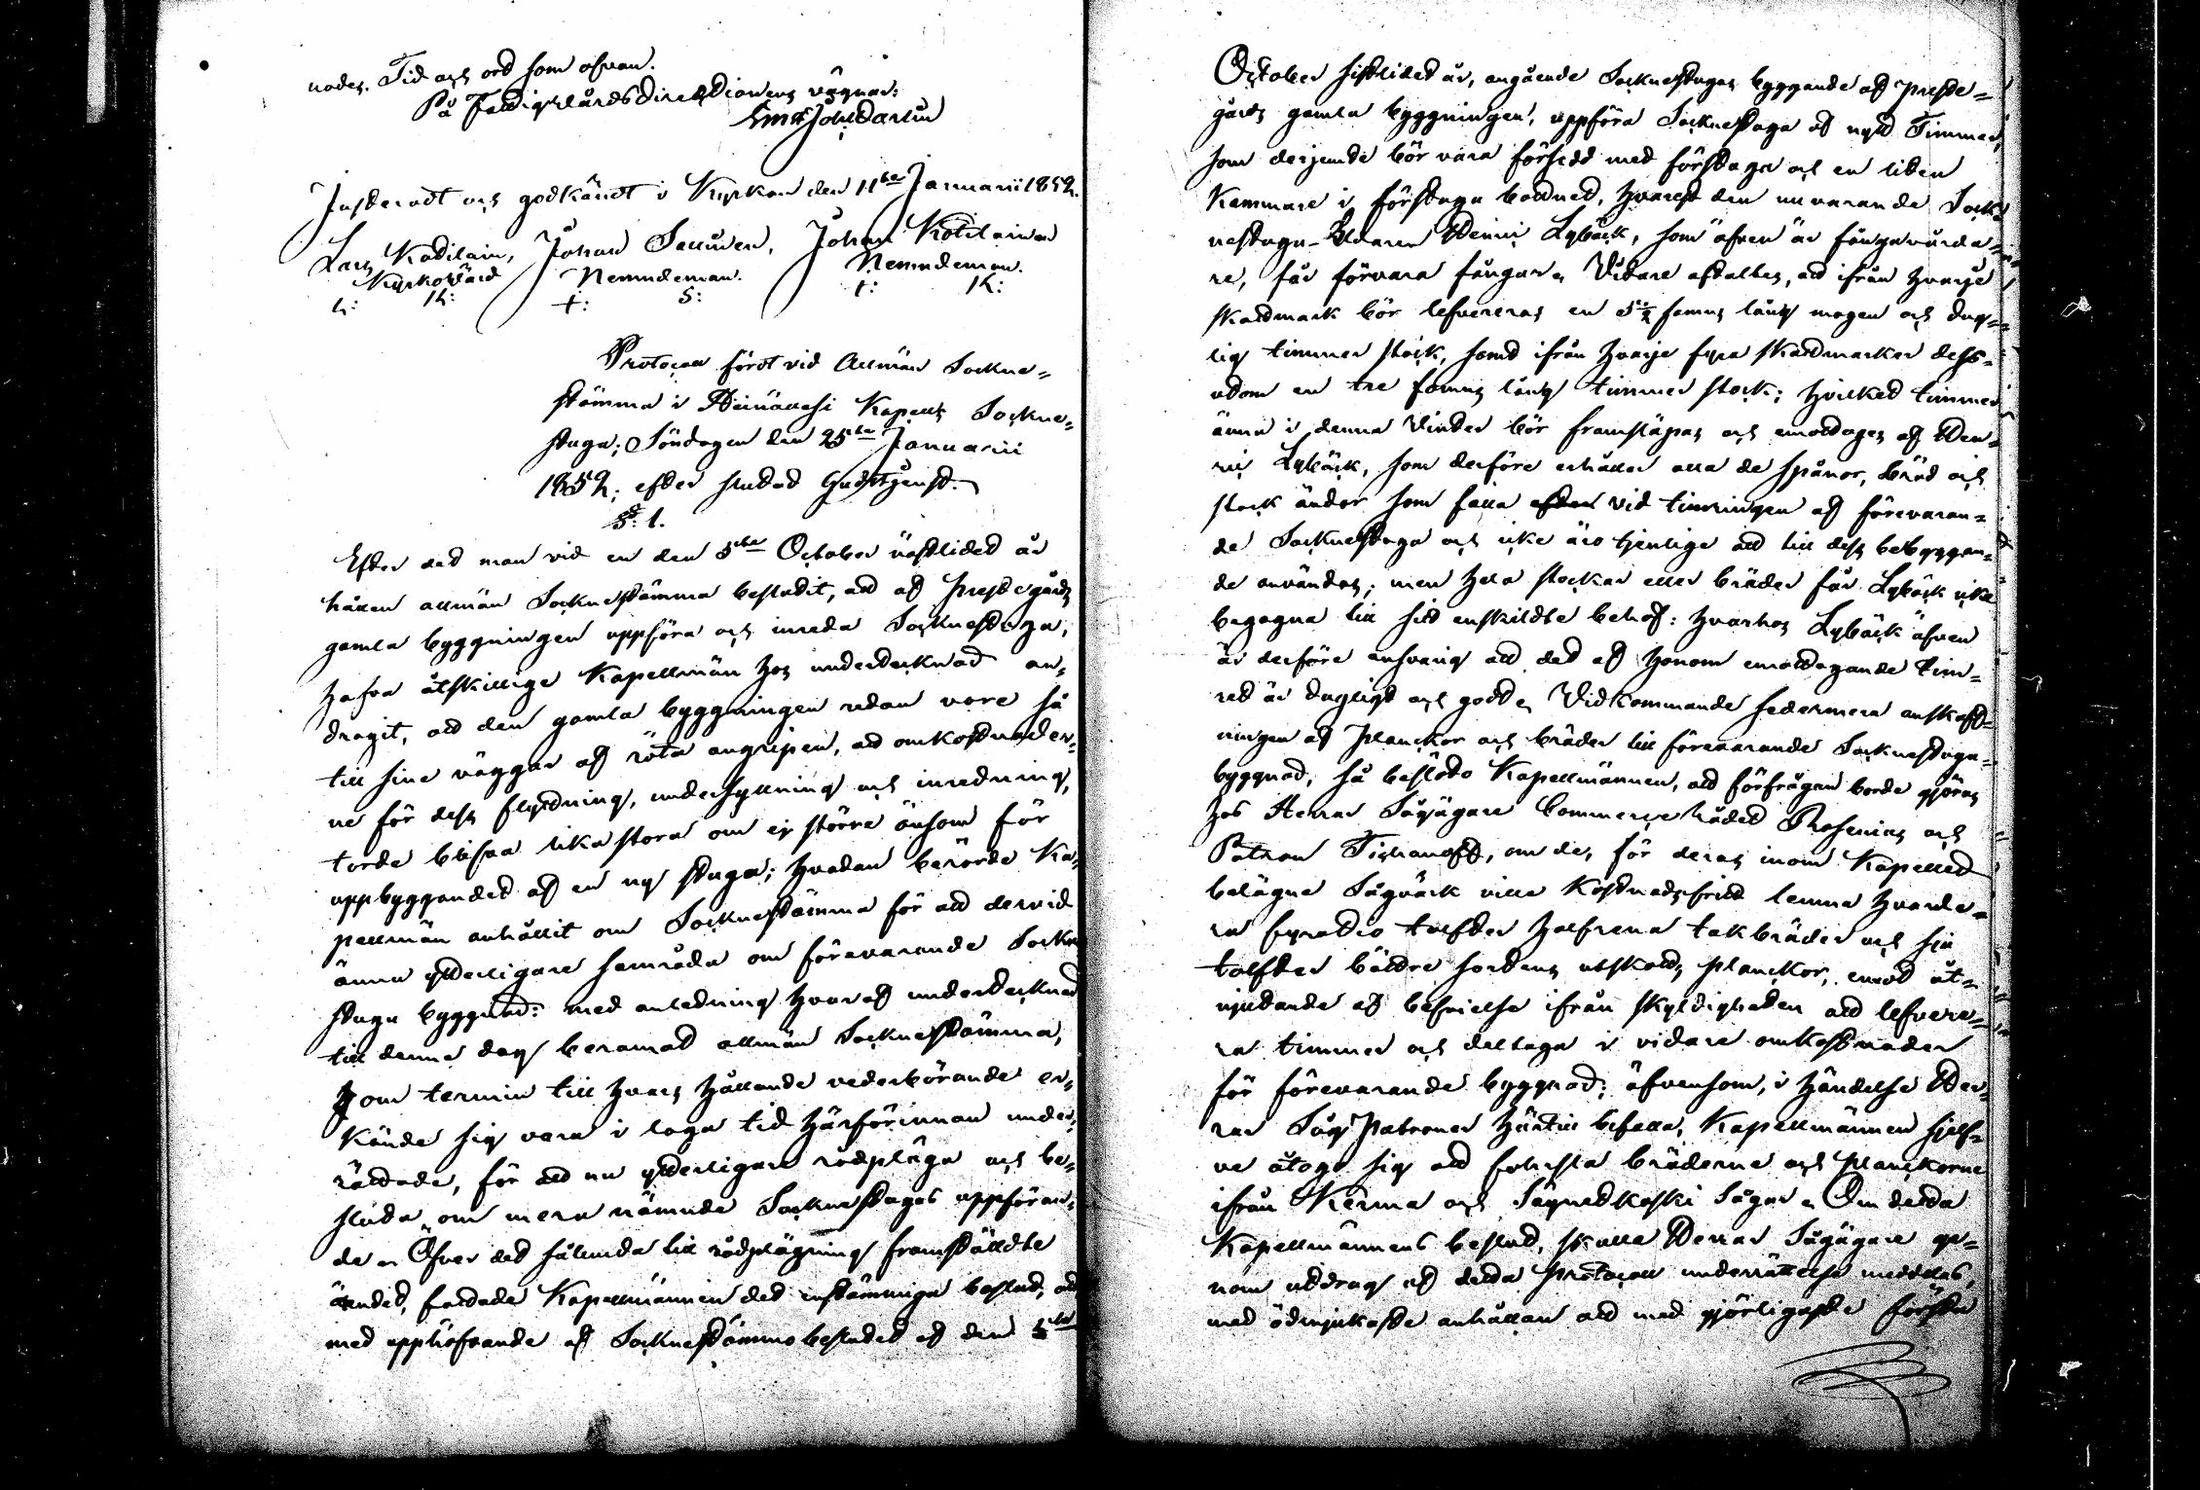 nades. Tid och ort som ofvan.
På Fattigvårdsdirektionens vägnar:
Joh: Dartin
Justeradt och godkändt i Kyrkan den 11te Januarii 1852.
Lars Kotilain, Johan Sallinen, Johan Kotilainen
Kyrkovärd Nemndeman. Nemndeman.
L: K: +: S: +: K:
Protocoll fördt vid Allmän Sockne-
stämma i Heinävesi Kapells Sockne-
stuga, Söndagen den 25te Januarii
1852, efter slutad Gudstjenst.
§: 1.
Efter det man vid en den 5te October sistlidet år
hållen allmän Socknestämma beslutit, att af Prestegårds
gamla byggningen uppföra och inreda Socknestuga,
hafva åtskillige Kapellmän hos undertecknad an-
dragit, att den gamla byggningen redan vore så
till sine väggar af röta angripen, att omkostnader-
ne för dess flyttning, undersyllning och inredning,
torde blifva lika stora om ej större änsom för
uppbyggandet af en ny stuga; hvadan berörde Ka-
pellmän anhållit om Socknestämma för att dervid
ännu ytterligare samråda om förevarande Sockne
stugu byggnad: med anledning hvaraf undertecknad
till denne dag beramat allmän Socknestämma,
som termin till hvars hållande vederbörande er-
kände sig vara i laga tid härförinnan under-
rättade, för att nu ytterligare rådpläga och be-
sluta om mera nämnde Socknestugas uppföran-
de. Öfver det sålunda till rådplägning framställdte
ämnet, fattade Kapellmännen det enstämmiga beslut, att
med upphäfvande af Socknestämmobeslutet af den 5te
October sistlidet år, angående Socknestugas byggande af Preste-
gårds gamla byggningen, uppföra Socknestuga af nytt Timmer,
som derjemte bör vara försedd med förstuga och en liten
Kammare i förstugu bottnet, hvarest den nuvarande Sock-
nestugu-Eldaren Henric Lybäck, som äfven är fångvårda-
re, får förvara fångar. Vidare aftaltes, att ifrån hvarje
skattmark bör lefvereras en 5½ famns lång mogen och dug-
lig timmer stock, samt ifrån hvarje fyra skattmarker dess-
utom en tre famns lång timmer stock; hvilket timmer
ännu i denna Vinter bör framsläpas och emottages af Hen-
ric Lybäck, som derföre erhåller alla de spånor, bräd och
stock ändor som falla vid timringen af förevaran-
de Socknestuga och icke äro tjenlige att till dess bebyggan-
de användas; men hela stockar eller bräder får Lybäck icke
begagna till sitt enskildte behof: hvarhos Lybäck äfven
är derföre ansvarig att det af honom emottagande tim-
ret är dugligt och godt. Vidkommande sedermera anskaff-
ningen af Planckor och bräder till förevarande Socknestugu-
byggnad, så beslöto Kapellmännen, att förfrågan borde göras
hos Herrar Sågägare Commerce Rådet Rosenius och
Patron Tichanoff, om de, för deras inom Kapellet
belägne Sågvärk ville kostnadsfritt lemna hvarde-
ra fyratio tolfter halfrena takbräder och sju
tolfter bättre sortens utskotts planckor, emot åt-
njutande af befrielse ifrån skyldigheten att lefvere-
ra timmer och deltaga i vidare omkostnader
för förevarande byggnad; äfvensom, i händelse Her-
rar Såg Patroner härtill bifalla, Kapellmännen sjelf-
ve åtoge sig att forsla bräderne och planckorne
ifrån Kerma och Sågar. Om detta
Kapellmännens beslut, skulle Herrar Sågägare ge-
nom utdrag af detta Protocoll underrättelse meddelas,
med ödmjukaste anhållan att med görligaste första